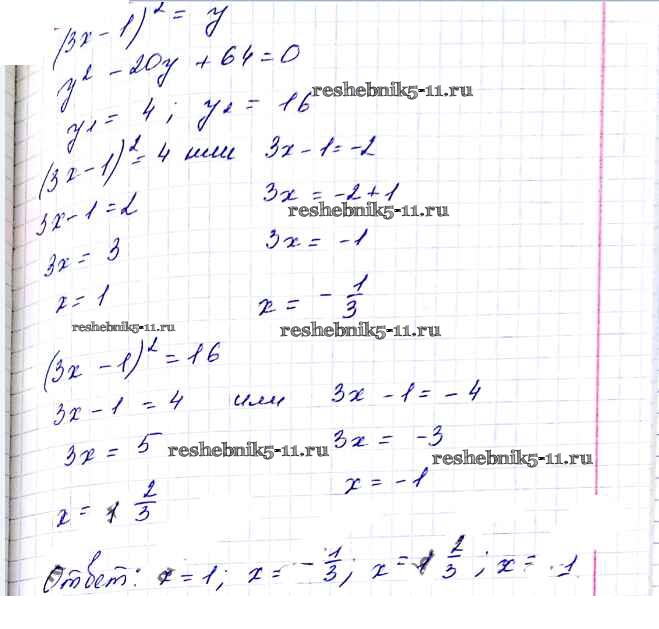 (3x-1)² = y
y² - 20y + 64 = 0
reshebnik5-11.ru
y₁ = 4; y₂ = 16
(3x-1)² = 4 или 3x-1 = -2
3x-1 = 2 3x = -2+1
reshebnik5-11.ru
3x = 3 3x = -1
x = 1 x = -1/3
reshebnik5-11.ru reshebnik5-11.ru
(3x-1)² = 16
3x-1 = 4 или 3x-1 = -4
3x = 5 reshebnik5-11.ru 3x = -3
reshebnik5-11.ru
x = 1 2/3 x = -1
Ответ: x = 1; x = -1/3; x = 1 2/3; x = -1